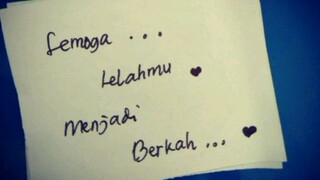 Semoga...
Lelahmu ♥
Menjadi
Berkah... ♥